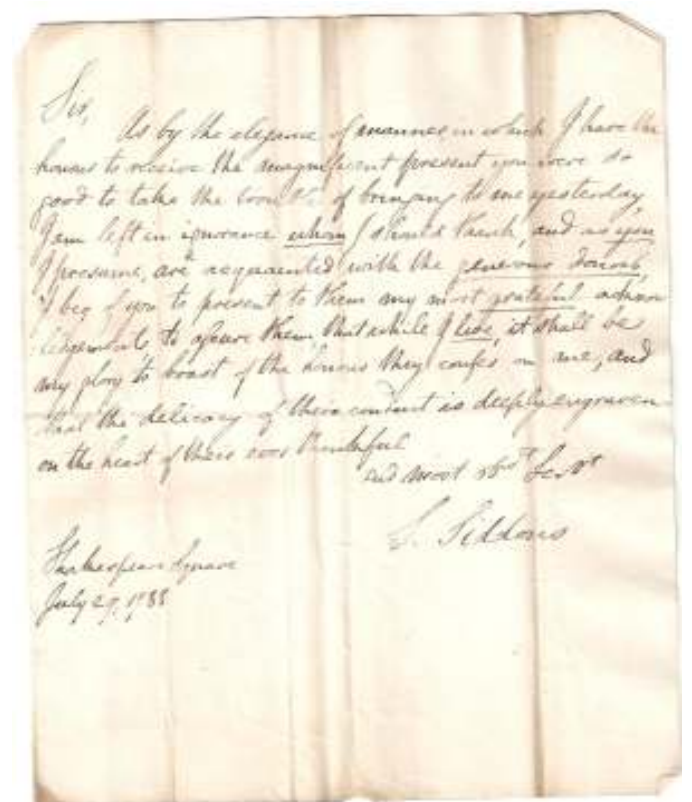 Sir,
As by the elegance of manner, in which I have the
honour to receive the magnificent present you were so
good to take the trouble of bringing to me yesterday,
I am left in ignorance whom I should thank, and as you
I presume, are acquainted with the generous donors,
I beg of you to present to them my most grateful acknow
ledgements to assure them that while I live, it shall be
my glory to boast of the honour they confer on me, and
that the delicacy of their conduct is deeply engraven
on the heart of their ever thankful
and most obt Servt
S. Siddons
Shakespear Square
July 29, 1788